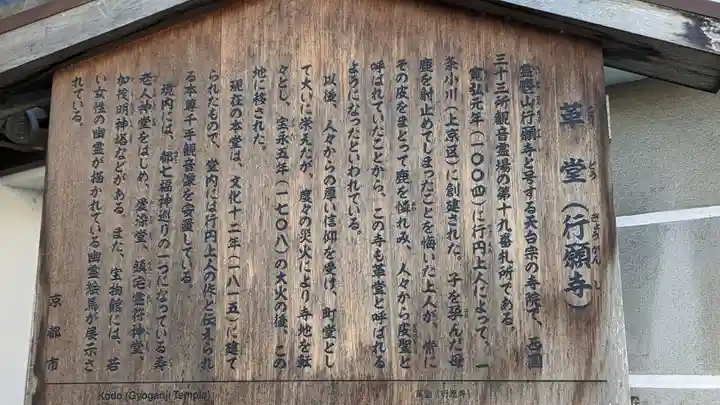 革堂（行願寺）
こうどう
ぎょうがんじ
霊麀山行願寺と号する天台宗の寺院で、西国
三十三所観音霊場の第十九番札所である。
寛弘元年（一〇〇四）に行円上人によって、一
条小川（上京区）に創建された。子を孕んだ母
鹿を射止めてしまったことを悔いた上人が、常に
その皮をまとって鹿を憐れみ、人々から皮聖と
呼ばれていたことから、この寺も革堂と呼ばれる
ようになったといわれている。
以後、人々からの厚い信仰を受け、町堂とし
て大いに栄えたが、度々の災火により寺地を転
々とし、宝永五年（一七〇八）の大火の後、この
地に移された。
現在の本堂は、文化十二年（一八一五）に建て
られたもので、堂内には行円上人の作と伝えられ
る本尊千手観音像を安置している。
境内には、都七福神巡りの一つになっている寿
老人神堂をはじめ、愛染堂、鎮宅霊符神堂、
加茂明神塔などがある。また、宝物館には、若
い女性の幽霊が描かれている幽霊絵馬が展示さ
れている。
京都市
Kodo (Gyoganji Temple)
革堂（行愿寺）